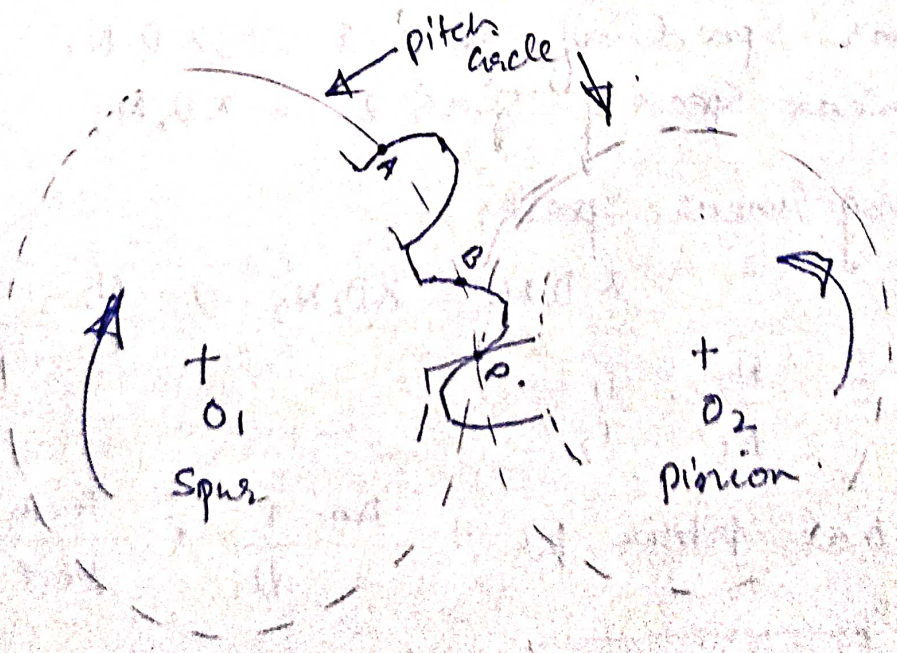 pitch
circle
A
B
P
+
+
O1
O2
Spur
Pinion